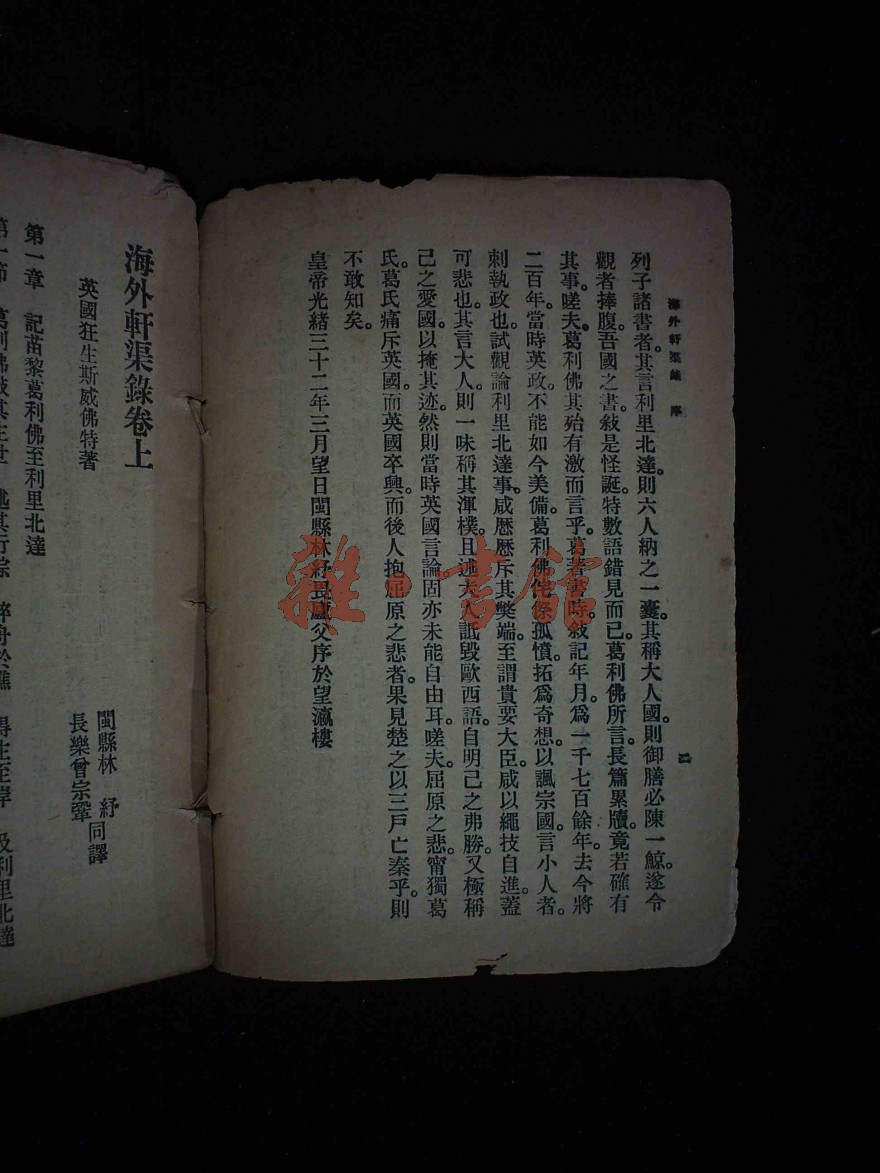 海外軒渠錄 序
二
列子諸書者。其言利里北達。則六人納之一囊。其稱大人國。則御膳必陳一鯨。遂令
觀者捧腹。吾國之書。敍是怪誕。特數語錯見而已。葛利佛所言。長篇累牘。竟若確有
其事。嗟夫。葛利佛其殆有激而言乎。葛著書時。敍記年月。爲一千七百餘年。去今將
二百年。當時英政。不能如今美備。葛利佛侘傺孤憤。拓爲奇想。以諷宗國。言小人者。
刺執政也。試觀論利里北達事。咸歷歷斥其弊端。至謂貴要大臣。咸以繩技自進。蓋
可悲也。其言大人。則一味稱其渾樸。且述大人詆毀歐西語。自明己之弗勝。又極稱
己之愛國。以掩其迹。然則當時英國言論。固亦未能自由耳。嗟夫。屈原之悲。甯獨葛
氏。葛氏痛斥英國。而英國卒興。而後人抱屈原之悲者。果見楚之以三戶亡秦乎。則
不敢知矣。
皇帝光緒三十二年三月望日閩縣林紓畏廬父序於望瀛樓
海外軒渠錄卷上
英國狂生斯威佛特著
閩縣林 紓
長樂曾宗鞏
同譯
第一章 記苗黎葛利佛至利里北達
第一節 葛利佛敍其生世 述其行踪 碎舟於礁 得生至岸 及利里北達
雜·書館